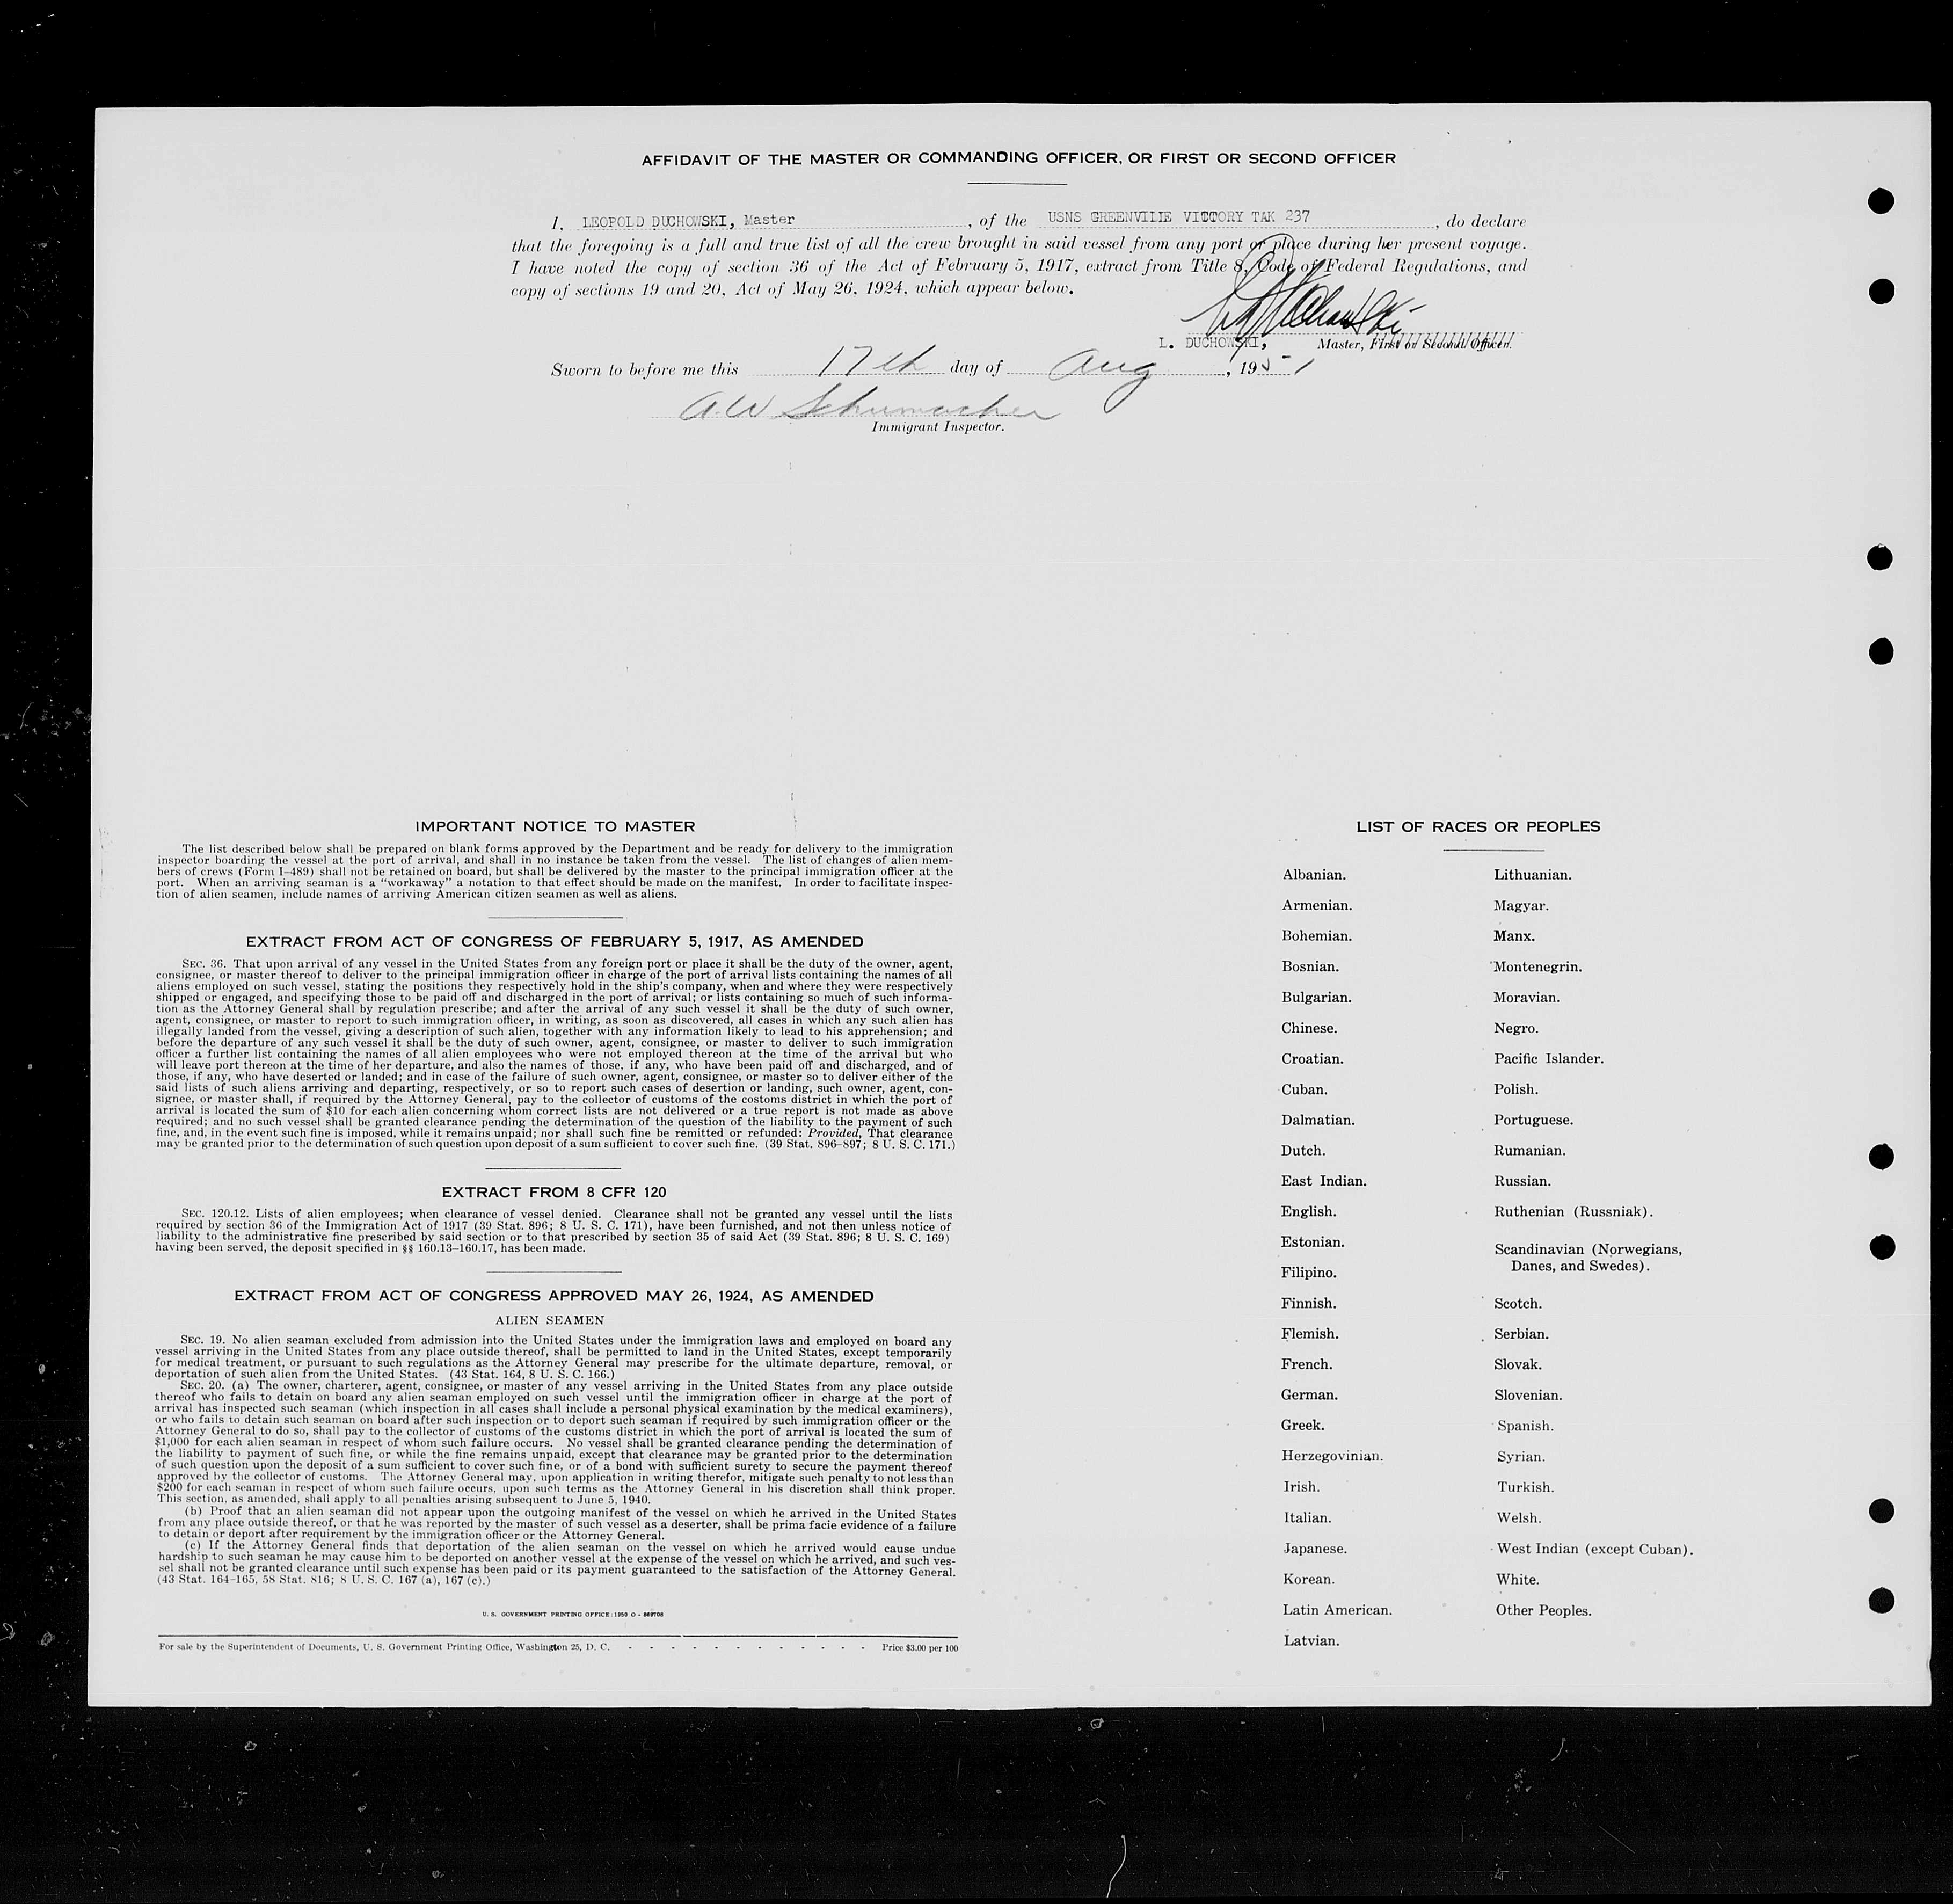 AFFIDAVIT OF THE MASTER OR COMMANDING OFFICER, OR FIRST OR SECOND OFFICER
I, LEOPOLD DUCHOWSKI, Master, of the USNS GREENVILLE VICTORY TAK 237, do declare
that the foregoing is a full and true list of all the crew brought in said vessel from any port or place during her present voyage.
I have noted the copy of section 36 of the Act of February 5, 1917, extract from Title 8, Code of Federal Regulations, and
copy of sections 19 and 20, Act of May 26, 1924, which appear below.
L. DUCHOWSKI, Master, First or Second Officer.
Sworn to before me this 17th day of Aug, 1951
A.W Schumacher
Immigrant Inspector.
IMPORTANT NOTICE TO MASTER
The list described below shall be prepared on blank forms approved by the Department and be ready for delivery to the immigration
inspector boarding the vessel at the port of arrival, and shall in no instance be taken from the vessel. The list of changes of alien mem-
bers of crews (Form I-489) shall not be retained on board, but shall be delivered by the master to the principal immigration officer at the
port. When an arriving seaman is a "workaway" a notation to that effect should be made on the manifest. In order to facilitate inspec-
tion of alien seamen, include names of arriving American citizen seamen as well as aliens.
EXTRACT FROM ACT OF CONGRESS OF FEBRUARY 5, 1917, AS AMENDED
SEC. 36. That upon arrival of any vessel in the United States from any foreign port or place it shall be the duty of the owner, agent,
consignee, or master thereof to deliver to the principal immigration officer in charge of the port of arrival lists containing the names of all
aliens employed on such vessel, stating the positions they respectively hold in the ship's company, when and where they were respectively
shipped or engaged, and specifying those to be paid off and discharged in the port of arrival; or lists containing so much of such informa-
tion as the Attorney General shall by regulation prescribe; and after the arrival of any such vessel it shall be the duty of such owner,
agent, consignee, or master to report to such immigration officer, in writing, as soon as discovered, all cases in which any such alien has
illegally landed from the vessel, giving a description of such alien, together with any information likely to lead to his apprehension; and
before the departure of any such vessel it shall be the duty of such owner, agent, consignee, or master to deliver to such immigration
officer a further list containing the names of all alien employees who were not employed thereon at the time of the arrival but who
will leave port thereon at the time of her departure, and also the names of those, if any, who have been paid off and discharged, and of
those, if any, who have deserted or landed; and in case of the failure of such owner, agent, consignee, or master so to deliver either of the
said lists of such aliens arriving and departing, respectively, or so to report such cases of desertion or landing, such owner, agent, con-
signee, or master shall, if required by the Attorney General, pay to the collector of customs of the costoms district in which the port of
arrival is located the sum of $10 for each alien concerning whom correct lists are not delivered or a true report is not made as above
required; and no such vessel shall be granted clearance pending the determination of the question of the liability to the payment of such
fine, and, in the event such fine is imposed, while it remains unpaid; nor shall such fine be remitted or refunded: Provided, That clearance
may be granted prior to the determination of such question upon deposit of a sum sufficient to cover such fine. (39 Stat. 896-897; 8 U. S. C. 171.)
EXTRACT FROM 8 CFR 120
SEC. 120.12. Lists of alien employees; when clearance of vessel denied. Clearance shall not be granted any vessel until the lists
required by section 36 of the Immigration Act of 1917 (39 Stat. 896; 8 U. S. C. 171), have been furnished, and not then unless notice of
liability to the administrative fine prescribed by said section or to that prescribed by section 35 of said Act (39 Stat. 896; 8 U. S. C. 169)
having been served, the deposit specified in §§ 160.13-160.17, has been made.
EXTRACT FROM ACT OF CONGRESS APPROVED MAY 26, 1924, AS AMENDED
ALIEN SEAMEN
SEC. 19. No alien seaman excluded from admission into the United States under the immigration laws and employed on board any
vessel arriving in the United States from any place outside thereof, shall be permitted to land in the United States, except temporarily
for medical treatment, or pursuant to such regulations as the Attorney General may prescribe for the ultimate departure, removal, or
deportation of such alien from the United States. (43 Stat. 164, 8 U. S. C. 166.)
SEC. 20. (a) The owner, charterer, agent, consignee, or master of any vessel arriving in the United States from any place outside
thereof who fails to detain on board any alien seaman employed on such vessel until the immigration officer in charge at the port of
arrival has inspected such seaman (which inspection in all cases shall include a personal physical examination by the medical examiners),
or who fails to detain such seaman on board after such inspection or to deport such seaman if required by such immigration officer or the
Attorney General to do so, shall pay to the collector of customs of the customs district in which the port of arrival is located the sum of
$1,000 for each alien seaman in respect of whom such failure occurs. No vessel shall be granted clearance pending the determination of
the liability to payment of such fine, or while the fine remains unpaid, except that clearance may be granted prior to the determination
of such question upon the deposit of a sum sufficient to cover such fine, or of a bond with sufficient surety to secure the payment thereof
approved by the collector of customs. The Attorney General may, upon application in writing therefor, mitigate such penalty to not less than
$200 for each seaman in respect of whom such failure occurs, upon such terms as the Attorney General in his discretion shall think proper.
This section, as amended, shall apply to all penalties arising subsequent to June 5, 1940.
(b) Proof that an alien seaman did not appear upon the outgoing manifest of the vessel on which he arrived in the United States
from any place outside thereof, or that he was reported by the master of such vessel as a deserter, shall be prima facie evidence of a failure
to detain or deport after requirement by the immigration officer or the Attorney General.
(c) If the Attorney General finds that deportation of the alien seaman on the vessel on which he arrived would cause undue
hardship to such seaman he may cause him to be deported on another vessel at the expense of the vessel on which he arrived, and such ves-
sel shall not be granted clearance until such expense has been paid or its payment guaranteed to the satisfaction of the Attorney General.
(43 Stat. 164-165, 58 Stat. 816; 8 U. S. C. 167 (a), 167 (c).)
U. S. GOVERNMENT PRINTING OFFICE: 1950 O - 869708
For sale by the Superintendent of Documents, U. S. Government Printing Office, Washington 25, D. C. - - - - - - - - - - - - Price $3.00 per 100
LIST OF RACES OR PEOPLES
Albanian.
Armenian.
Bohemian.
Bosnian.
Bulgarian.
Chinese.
Croatian.
Cuban.
Dalmatian.
Dutch.
East Indian.
English.
Estonian.
Filipino.
Finnish.
Flemish.
French.
German.
Greek.
Herzegovinian.
Irish.
Italian.
Japanese.
Korean.
Latin American.
Latvian.
Lithuanian.
Magyar.
Manx.
Montenegrin.
Moravian.
Negro.
Pacific Islander.
Polish.
Portuguese.
Rumanian.
Russian.
Ruthenian (Russniak).
Scandinavian (Norwegians,
Danes, and Swedes).
Scotch.
Serbian.
Slovak.
Slovenian.
Spanish.
Syrian.
Turkish.
Welsh.
West Indian (except Cuban).
White.
Other Peoples.